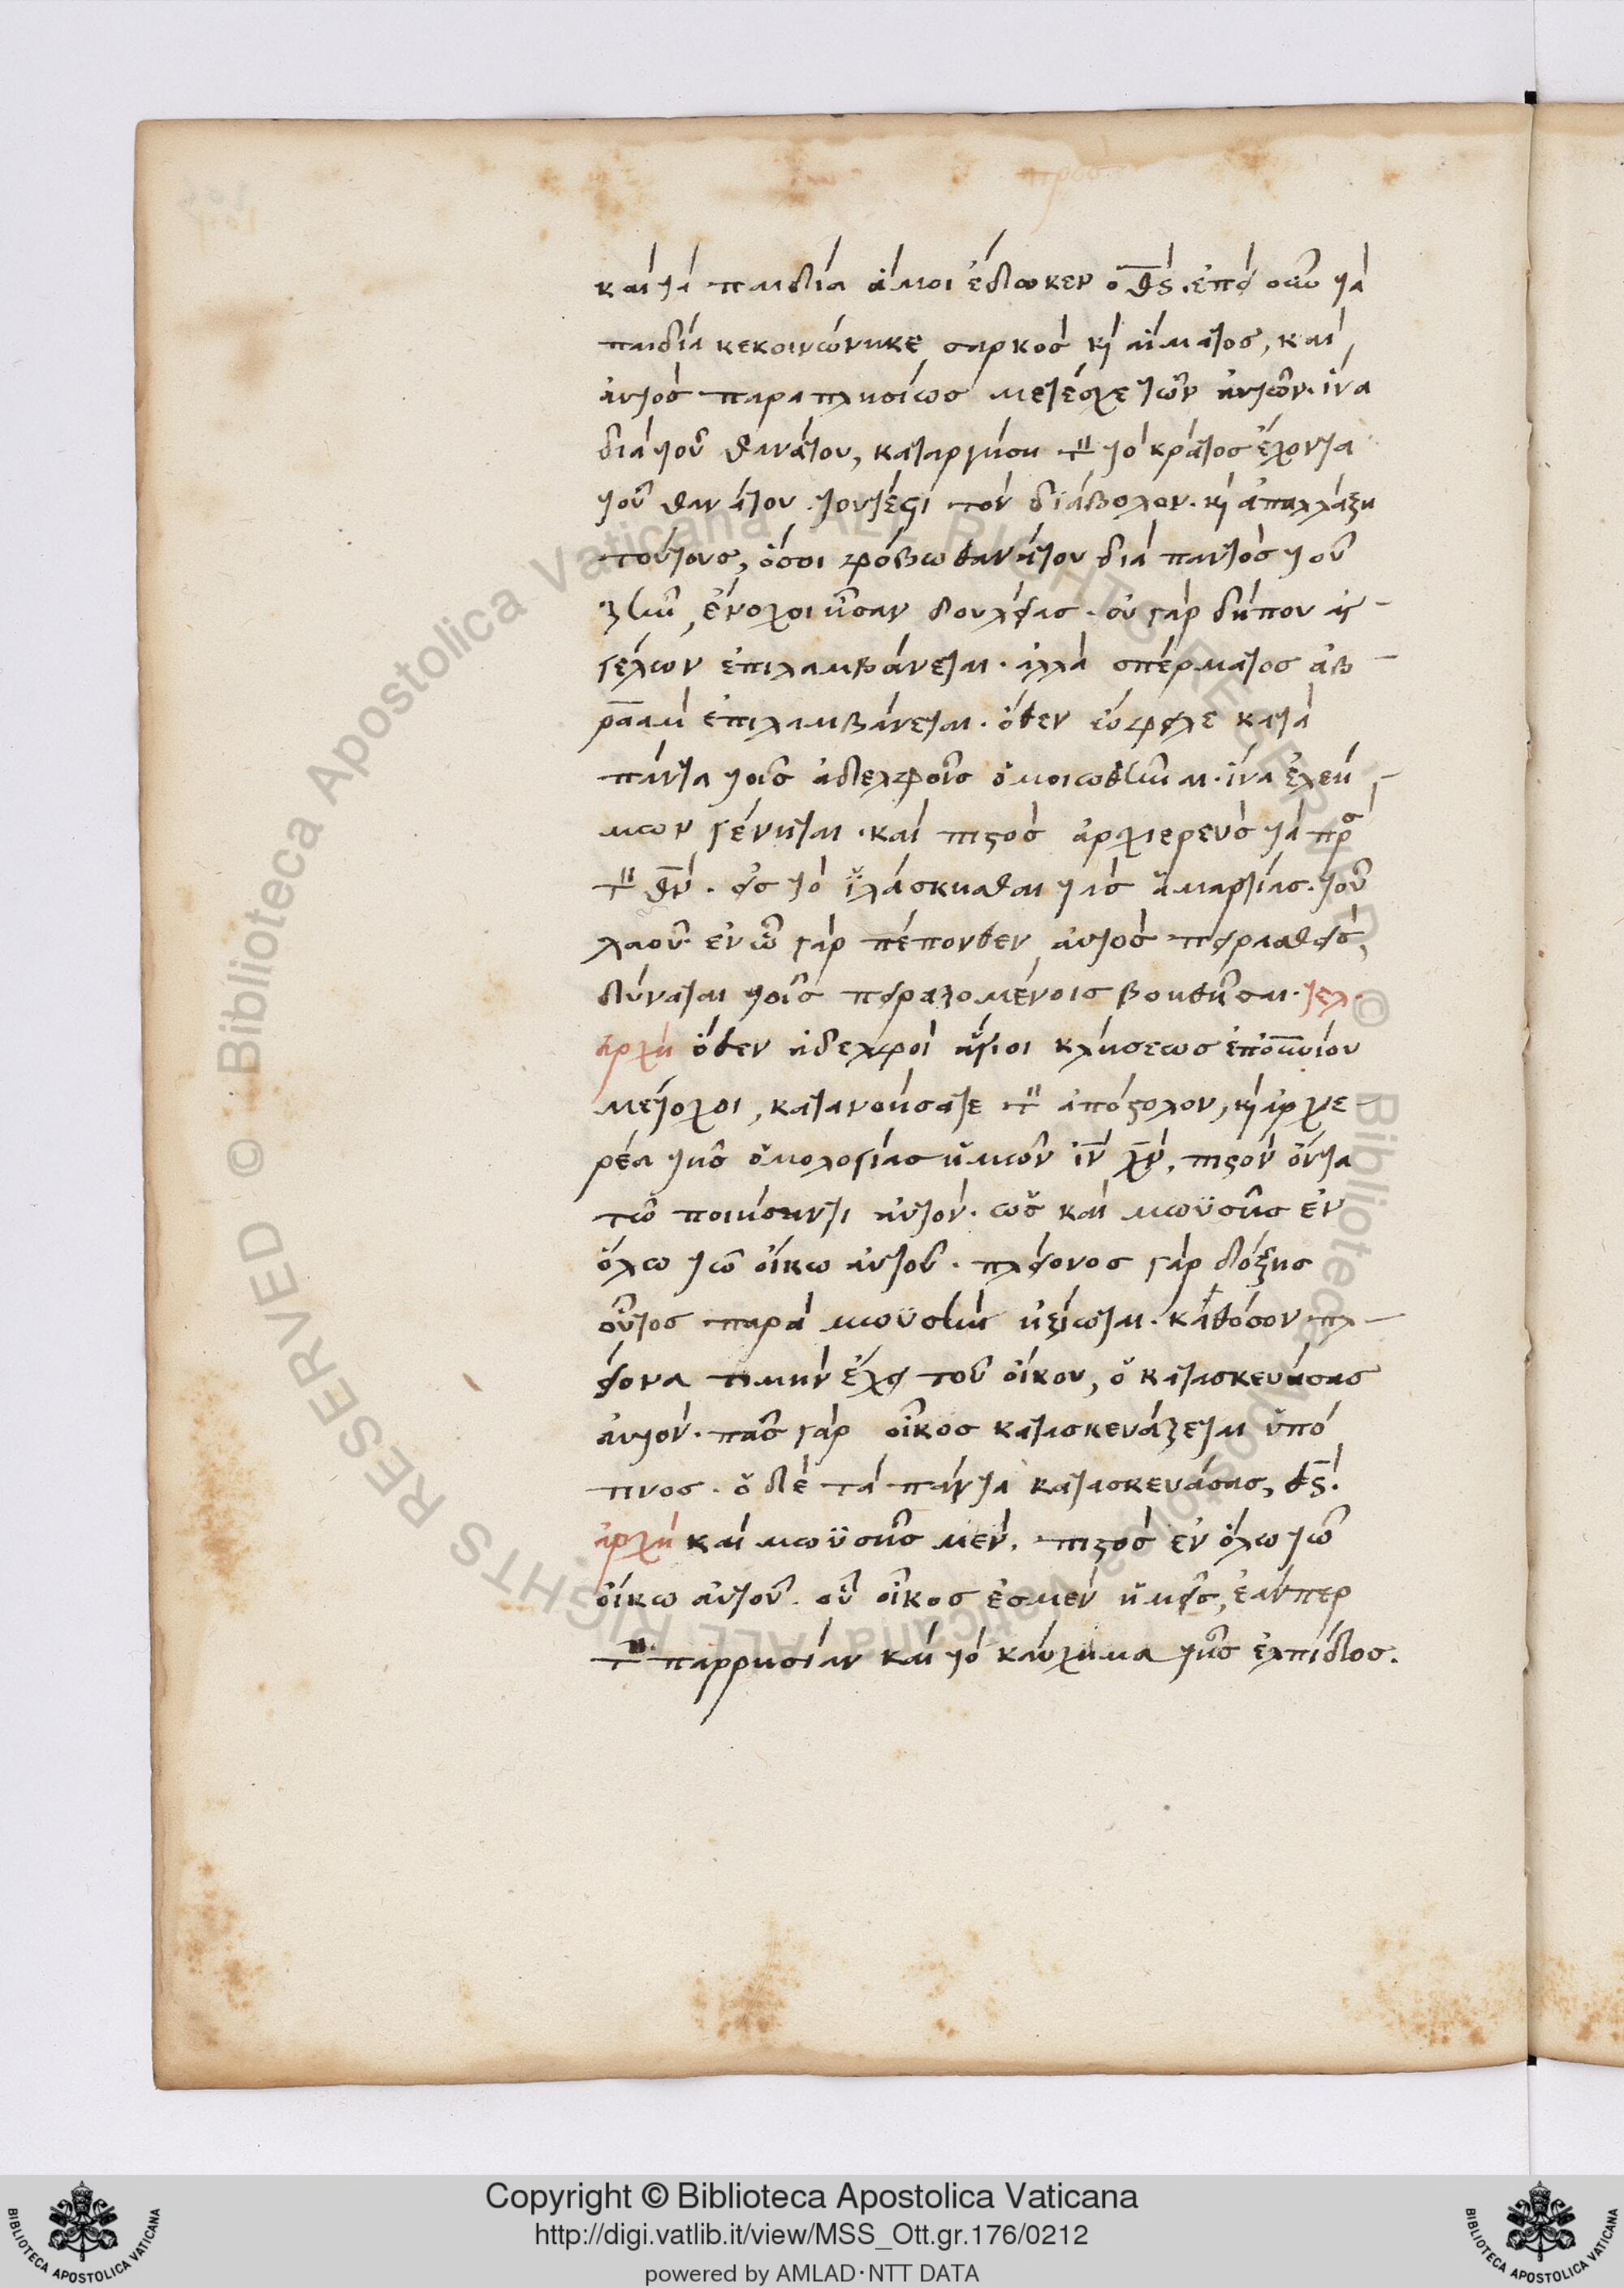 καὶ τὰ παιδία ἅ μοι ἔδωκεν ὁ θς. ἐπεὶ οὖν τὰ
παιδία κεκοινώνηκε σαρκὸς κ αἵματος, καὶ
αὐτὸς παραπλησίως μετέσχε τῶν αὐτῶν. ἵνα
διὰ τοῦ θανάτου, καταργήση τὸν τὸ κράτος ἔχοντα
τοῦ θανάτου. τουτέστι τὸν διάβολον. κ ἀπαλλάξη
τούτους, ὅσοι φόβω θανάτου διὰ παντὸς τοῦ
ζῆν, ἔνοχοι ἦσαν δουλείας. οὐ γὰρ δήπου ἀγ
γέλων ἐπιλαμβάνεται. ἀλλὰ σπέρματος ἀβ
ραὰμ ἐπιλαμβάνεται. ὅθεν ὤφειλε κατὰ
πάντα τοῖς ἀδελφοῖς ὁμοιωθῆναι. ἵνα ἐλεή
μων γένηται. καὶ πιστὸς ἀρχιερεὺς τὰ πρὸ
τὸν θν. εἰς τὸ ἱλάσκεσθαι τὰς ἁμαρτίας. τοῦ
λαοῦ. ἐν ὧ γὰρ πέπονθεν, αὐτὸς πειρασθεὶς,
δύναται τοῖς πειραζομένοις βοηθῆσαι. τελ.
ἀρχὴ ὅθεν ἀδελφοὶ ἅγιοι κλήσεως ἐπουνίου
μέτοχοι, κατανοήσατε τὸν ἀπόστολον, κ ἀρχιε
ρέα τῆς ὁμολογίας ἡμῶν ιν χν, πιστὸν ὄντα
τῶ ποιήσαντι αὐτόν. ὡς καὶ μωϋσῆς ἐν
ὅλω τῶ οἴκω αὐτοῦ. πλείονος γὰρ δόξης
οὗτος παρὰ μωϋσῆν ἠξίωται. καθόσον πλ
είονα τιμὴν ἔχει τοῦ οἴκου, ὁ κατασκευάσας
αὐτόν. πᾶς γὰρ οἶκος κατασκευάζεται ὑπό
τινος. ὁ δὲ τὰ πάντα κατασκευάσας, θς.
ἀρχὴ καὶ μωϋσῆς μὲν. πιστὸς ἐν ὅλω τῶ
οἴκω αὐτοῦ. οὗ οἶκος ἐσμεν ἡμεῖς, ἐάνπερ
τὴν παρρησίαν καὶ τὸ καύχημα τῆς ἐλπίδος.
Copyright © Biblioteca Apostolica Vaticana
http://digi.vatlib.it/view/MSS_Ott.gr.176/0212
powered by AMLAD·NTT DATA
BIBLIOTECA APOSTOLICA VATICANA
BIBLIOTECA APOSTOLICA VATICANA
© Biblioteca Apostolica Vaticana ALL RIGHTS RESERVED © Biblioteca Apostolica Vaticana ALL RIGHTS RESERVED